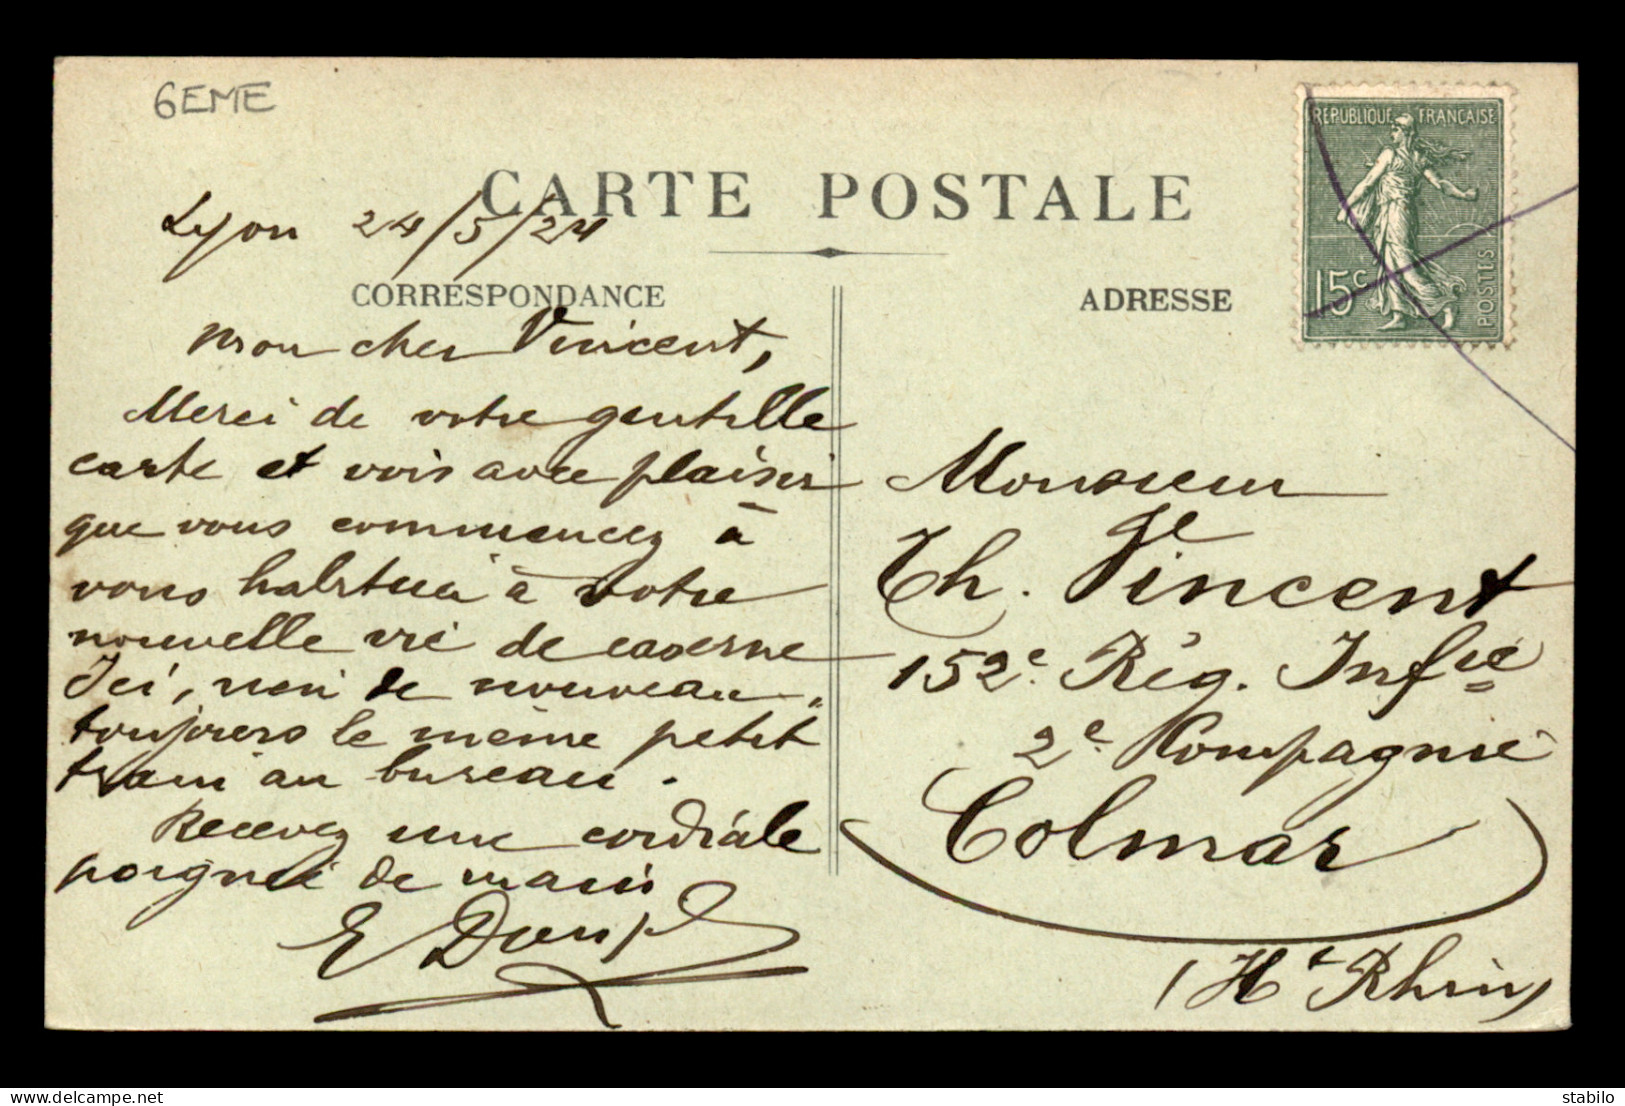 6EME
CARTE POSTALE
Lyon 24/5/24
CORRESPONDANCE
Mon cher Vincent,
Merci de votre gentille
carte et vois avec plaisir
que vous commencez à
vous habituer à votre
nouvelle vie de caserne
Ici, rien de nouveau,
toujours le même petit
train au bureau.
Recevez une cordiale
poignée de main
E
ADRESSE
REPUBLIQUE FRANÇAISE
15c
POSTES
Monsieur
Th. Vincent
152e. Rég. Infie
2e. Compagnie
Colmar
(Ht Rhin)
delcampe.net
stabilo